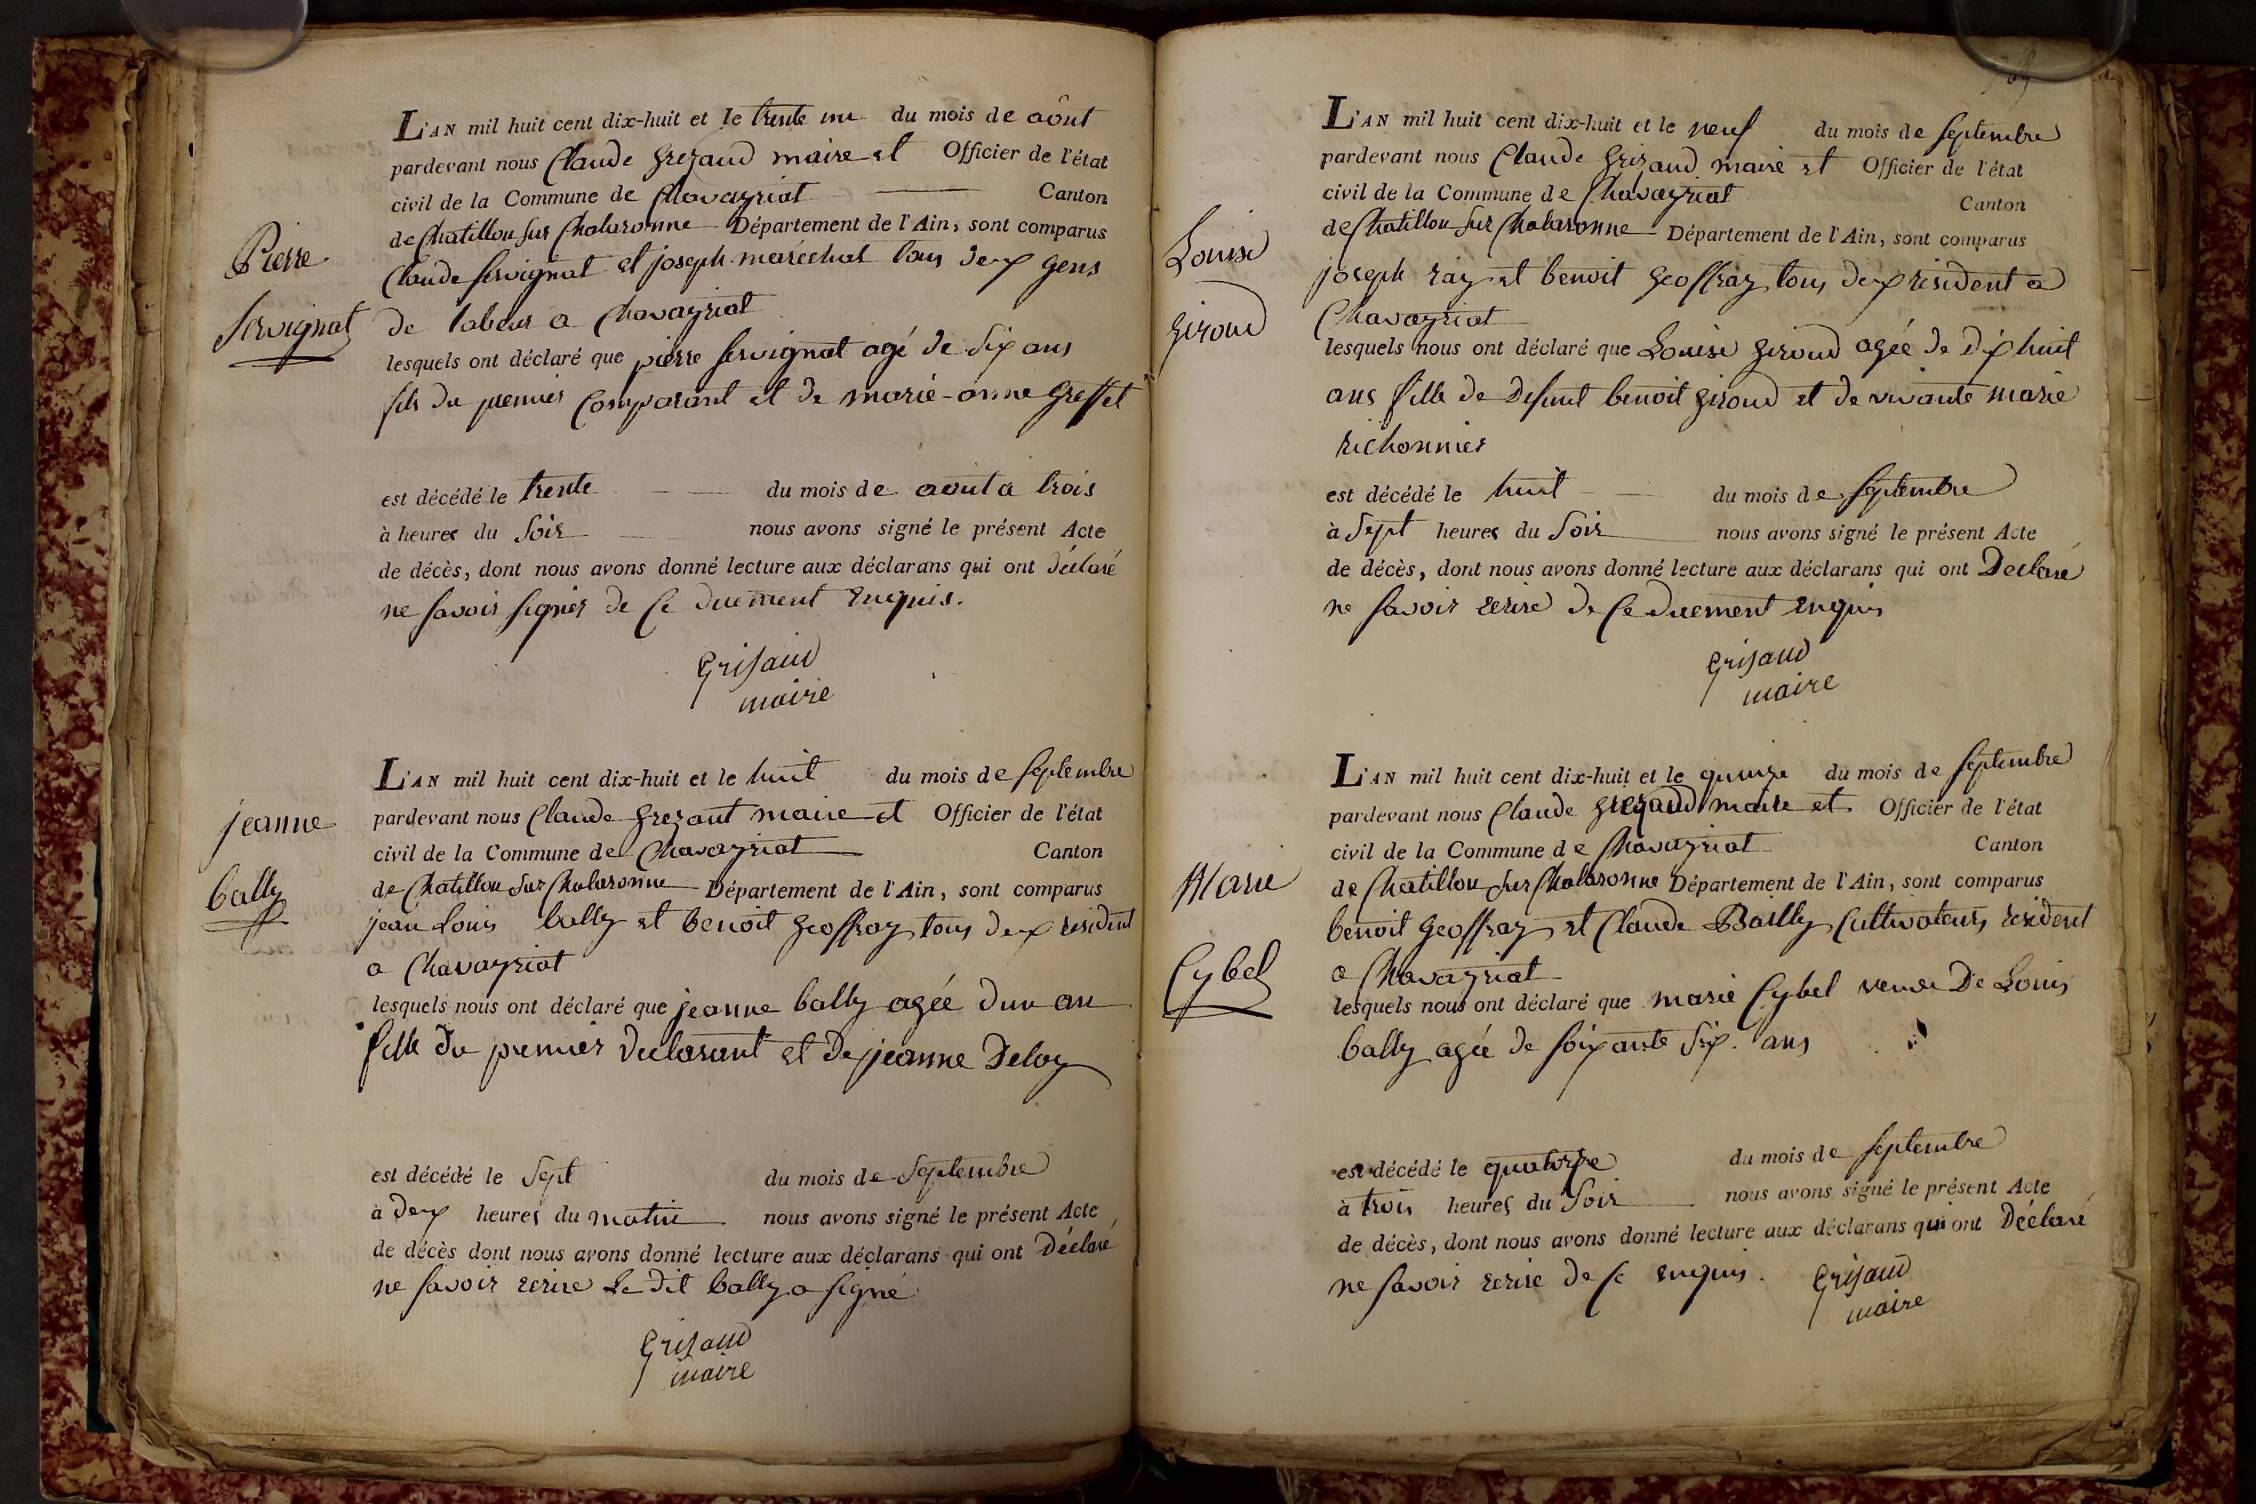 L'AN mil huit cent dix-huit et le trente un du mois de aôut
pardevant nous Claude Grezaud maire et Officier de l'état
civil de la Commune de Chavayriat Canton
de Chatillon sur Chalaronne Département de l'Ain, sont comparus
Claude servignat et joseph maréchal tous deux gens
de labeur a Chavayriat
lesquels ont déclaré que pierre servignat agé de six ans
fils du premier Comparant et de marie-anne Greffet
Pierre
Servignat
est décédé le trente du mois de aout a trois
à heures du soir nous avons signé le présent Acte
de décès, dont nous avons donné lecture aux déclarans qui ont déclaré
ne savoir signer de ce duement enquis.
Grisaud
maire
L'AN mil huit cent dix-huit et le huit du mois de septembre
pardevant nous Claude Grezant maire et Officier de l'état
civil de la Commune de Chavayriat Canton
de Chatillon sur Chalaronne Département de l'Ain, sont comparus
jean Louis bally et benoit Geoffray tous deux résident
a Chavayriat
lesquels nous ont déclaré que jeanne bally agée d'un an
fille du premier declarant et De jeanne Deloy
jeanne
bally
est décédé le sept du mois de septembre
à deux heures du matin nous avons signé le présent Acte
de décès dont nous avons donné lecture aux déclarans qui ont Déclaré
ne savoir ecrire Le dit bally a signé
Grisaud
maire
L'AN mil huit cent dix-huit et le neuf du mois de septembre
pardevant nous Claude Grizaud maire et Officier de l'état
civil de la Commune de Chavayriat Canton
de Chatillon sur Chalaronne Département de l'Ain, sont comparus
joseph ray et benoit Geoffray tous deux résident a
Chavayriat
lesquels nous ont déclaré que Louise giroud agée de dix huit
ans fille de defunt benoit giroud et de vivante marie
richonnier
Louise
giroud
est décédé le huit du mois de septembre
à sept heures du soir nous avons signé le présent Acte
de décès, dont nous avons donné lecture aux déclarans qui ont Déclaré
ne savoir ecrire de ce duement enquis
Grisaud
maire
L'AN mil huit cent dix-huit et le quinze du mois de septembre
pardevant nous Claude Grezaud maire et Officier de l'état
civil de la Commune de Chavayriat Canton
de Chatillon sur Chalaronne Département de l'Ain, sont comparus
benoit Geoffray et Claude Bailly Cultivateurs résident
a Chavayriat
lesquels nous ont déclaré que marie Cybel veuve De Louis
bally agée de soixante six ans
Marie
Cybel
est décédé le quatorze du mois de septembre
à trois heures du soir nous avons signé le présent Acte
de décès, dont nous avons donné lecture aux déclarans qui ont Déclaré
ne savoir ecrire de ce enquis.
Grisaud
maire